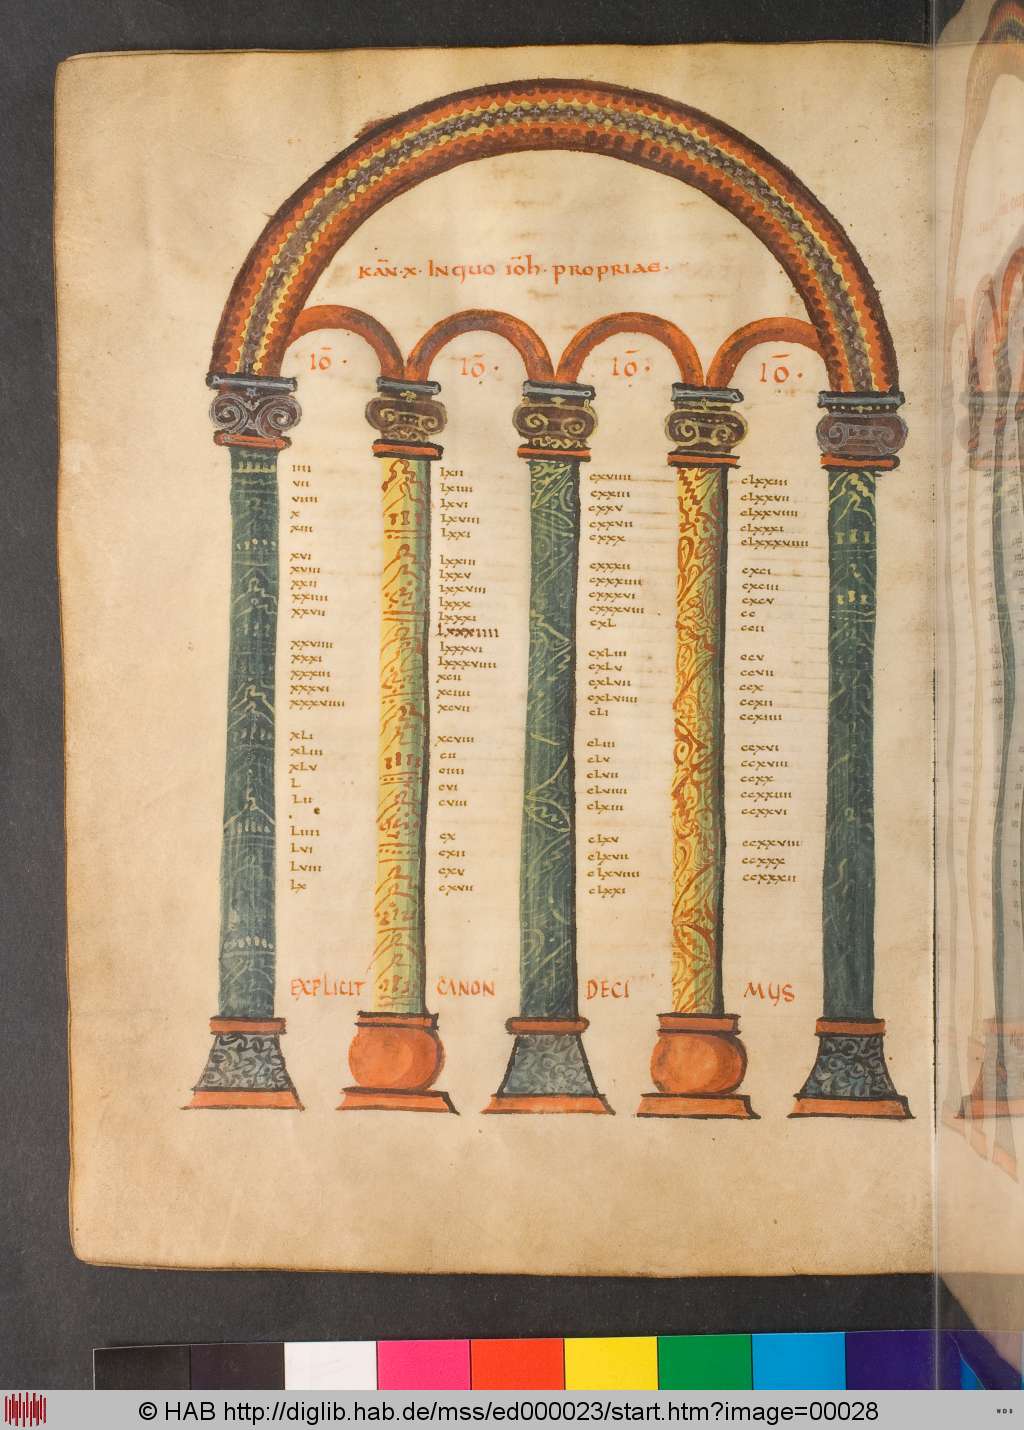 KAN̄·X· IN QUO IŌH· PROPRIAE·
IŌ·
IIII
VII
VIIII
X
XIII
XVI
XVIII
XXII
XXIIII
XXVII
XXVIIII
XXXI
XXXIII
XXXVI
XXXVIIII
XLI
XLIII
XLV
L
LII
LIIII
LVI
LVIII
LX
IŌ·
LXII
LXIIII
LXVI
LXVIII
LXXI
LXXIII
LXXV
LXXVIII
LXXX
LXXXI
LXXXIIII
LXXXVI
LXXXVIIII
XCII
XCIIII
XCVII
XCVIIII
CII
CIIII
CVI
CVIII
CX
CXII
CXV
CXVII
IŌ·
CXVIIII
CXXIII
CXXV
CXXVII
CXXX
CXXXII
CXXXIIII
CXXXVI
CXXXVIII
CXL
CXLIII
CXLV
CXLVII
CXLVIIII
CLI
CLIII
CLV
CLVII
CLVIIII
CLXIII
CLXV
CLXVII
CLXVIIII
CLXXI
IŌ·
CLXXIII
CLXXVII
CLXXVIIII
CLXXXI
CLXXXVIIII
CXCI
CXCIII
CXCV
CC
CCII
CCV
CCVII
CCX
CCXII
CCXIIII
CCXVI
CCXVIII
CCXX
CCXXIIII
CCXXVI
CCXXVIII
CCXXX
CCXXXII
EXPLICIT CANON DECI MUS
© HAB http://diglib.hab.de/mss/ed000023/start.htm?image=00028